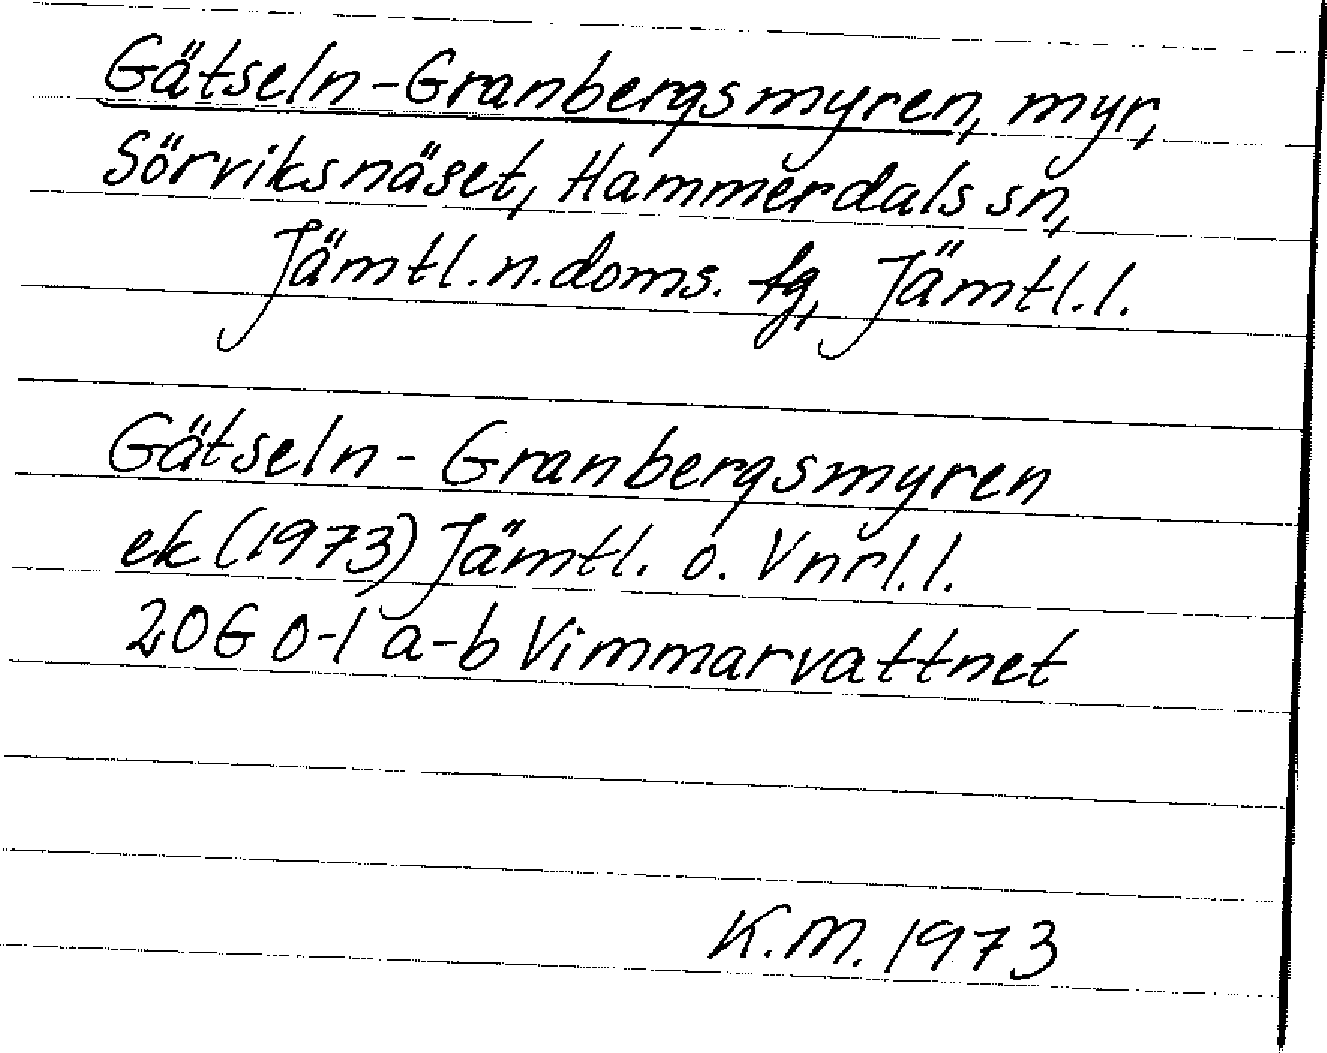 Gätseln-Granbergsmyren, myr,
Sörviksnäset, Hammerdals sn,
Jämtl.n.doms. tg, Jämtl.l.
Gätseln-Granbergsmyren
ek (1973) Jämtl. o. Vnrl.l.
20G 0-1 a-b Vimmarvattnet
K.M. 1973